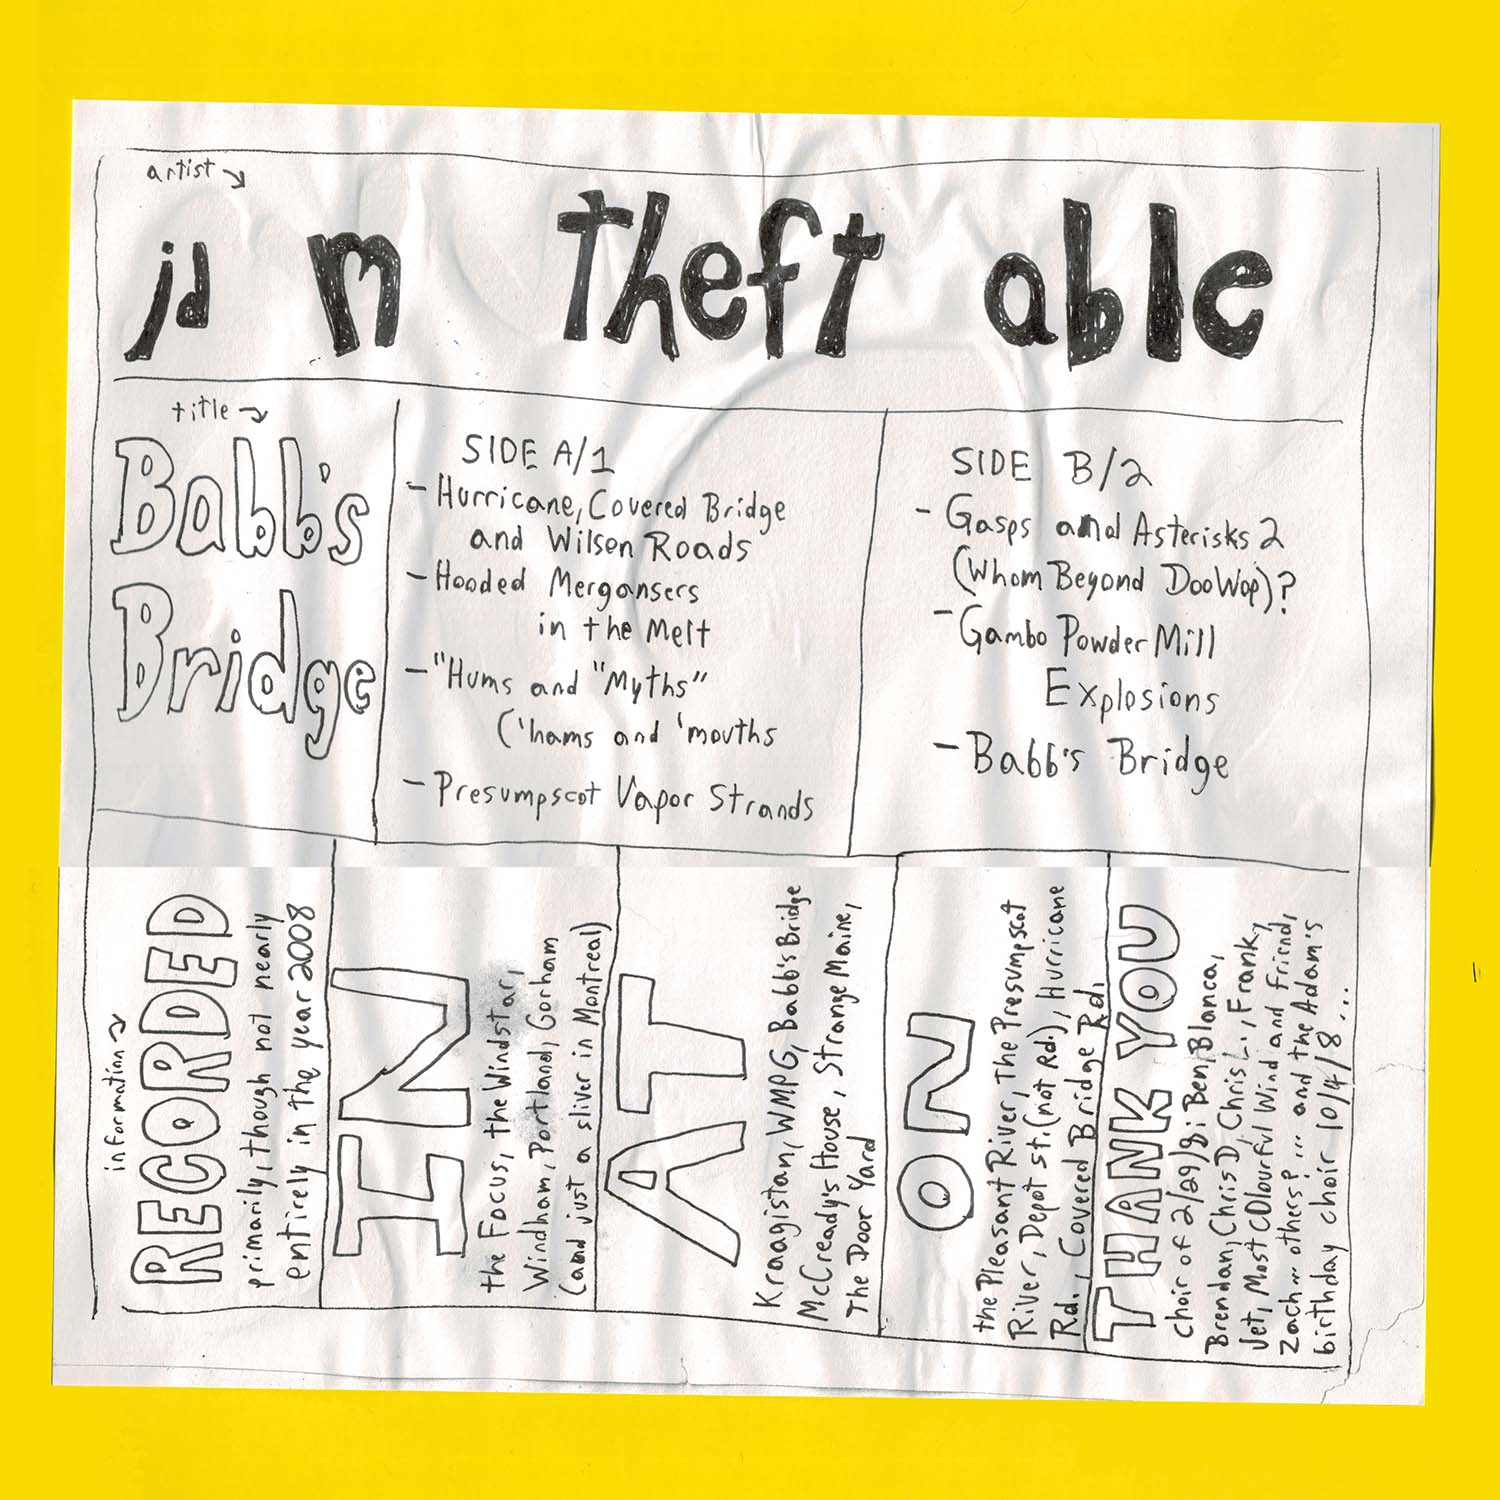 artist
id m theft able
title
Babb's
Bridge
SIDE A/1
- Hurricane, Covered Bridge
and Wilson Roads
- Hooded Mergansers
in the Melt
- "Hums and "Myths"
('hams and 'mouths
- Presumpscot Vapor Strands
SIDE B/2
- Gasps and Asterisks 2
(Whom Beyond DooWop)?
- Gambo Powder Mill
Explosions
- Babb's Bridge
information
RECORDED
primarily, though not nearly
entirely in the year 2008
IN
the Focus, the Windstar,
Windham, Portland, Gorham
(and just a sliver in Montreal)
AT
Kraagistan, WMPG, Babb's Bridge
McCready's House, Strange Maine,
The Door Yard
ON
the Pleasant River, The Presumpscot
River, Depot st. (not Rd.), Hurricane
Rd., Covered Bridge Rd.
THANK YOU
choir of 2/29/8: Ben, Blanca,
Brendan, Chris D, Chris L., Frank,
Jet, Most COlourful Wind and Friend,
Zach... others?... and the Adam's
birthday choir 10/4/8...